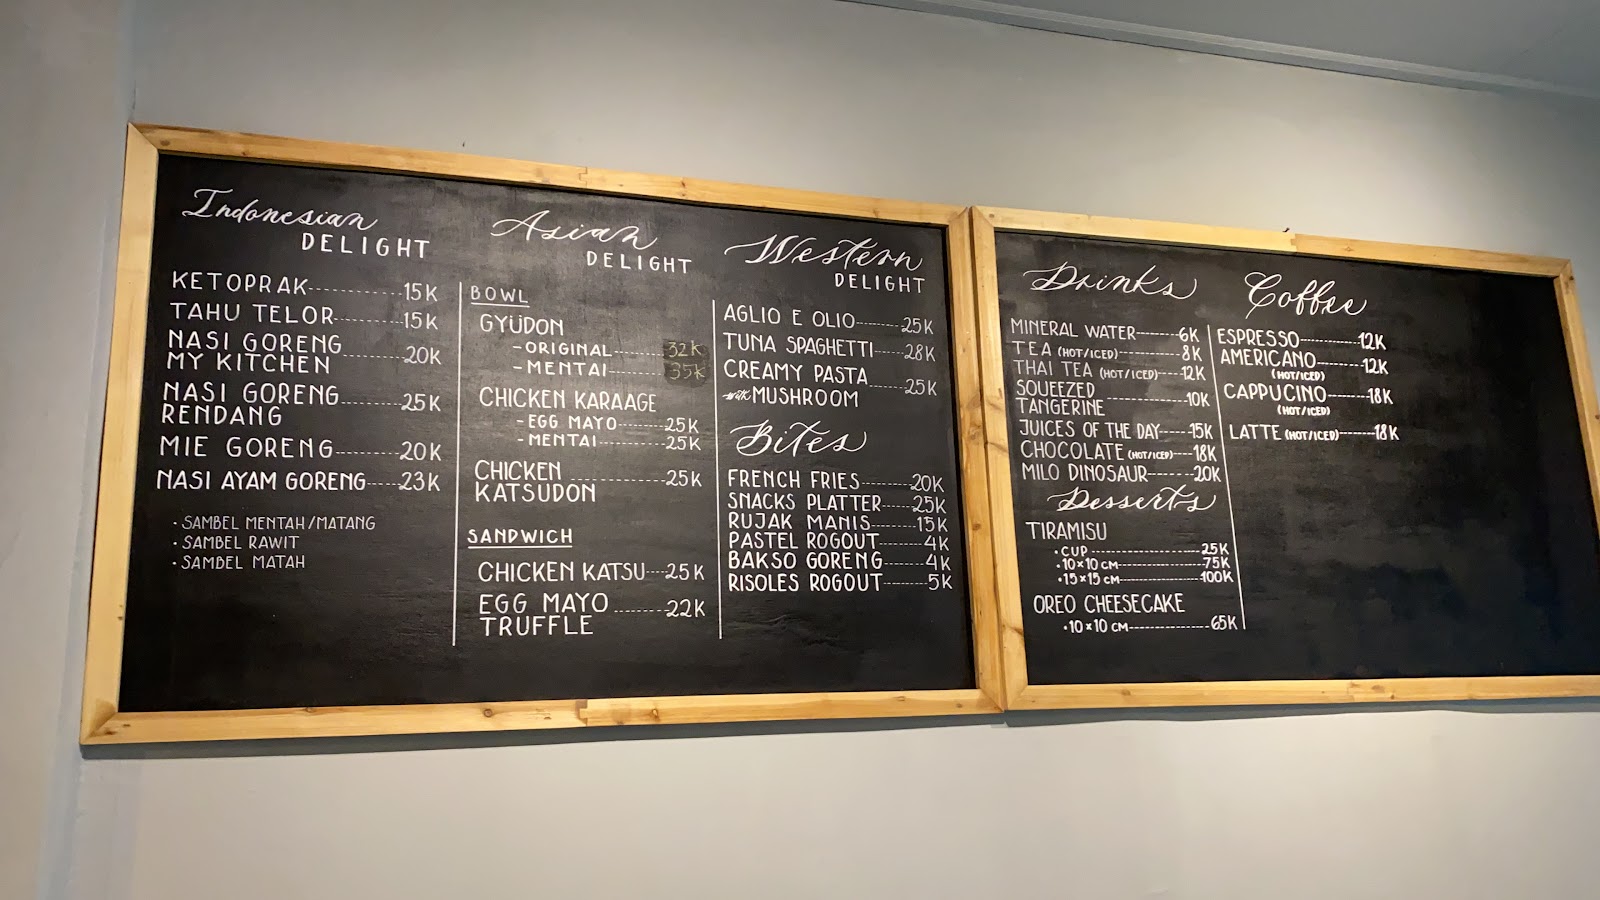 Indonesian
DELIGHT
KETOPRAK 15K
TAHU TELOR 15K
NASI GORENG
MY KITCHEN 20K
NASI GORENG
RENDANG 25K
MIE GORENG 20K
NASI AYAM GORENG 23K
· SAMBEL MENTAH/MATANG
· SAMBEL RAWIT
· SAMBEL MATAH
Asian
DELIGHT
BOWL
GYŪDON
- ORIGINAL 32K
- MENTAI 35K
CHICKEN KARAAGE
- EGG MAYO 25K
- MENTAI 25K
CHICKEN
KATSUDON 25K
SANDWICH
CHICKEN KATSU 25K
EGG MAYO
TRUFFLE 22K
Western
DELIGHT
AGLIO E OLIO 25K
TUNA SPAGHETTI 28K
CREAMY PASTA
with MUSHROOM 25K
Bites
FRENCH FRIES 20K
SNACKS PLATTER 25K
RUJAK MANIS 15K
PASTEL ROGOUT 4K
BAKSO GORENG 4K
RISOLES ROGOUT 5K
Drinks
MINERAL WATER 6K
TEA (HOT/ICED) 8K
THAI TEA (HOT/ICED) 12K
SQUEEZED
TANGERINE 10K
JUICES OF THE DAY 15K
CHOCOLATE (HOT/ICED) 18K
MILO DINOSAUR 20K
Desserts
TIRAMISU
· CUP 25K
· 10×10 CM 75K
· 15×15 CM 100K
OREO CHEESECAKE
· 10×10 CM 65K
Coffee
ESPRESSO 12K
AMERICANO 12K
(HOT/ICED)
CAPPUCINO 18K
(HOT/ICED)
LATTE (HOT/ICED) 18K